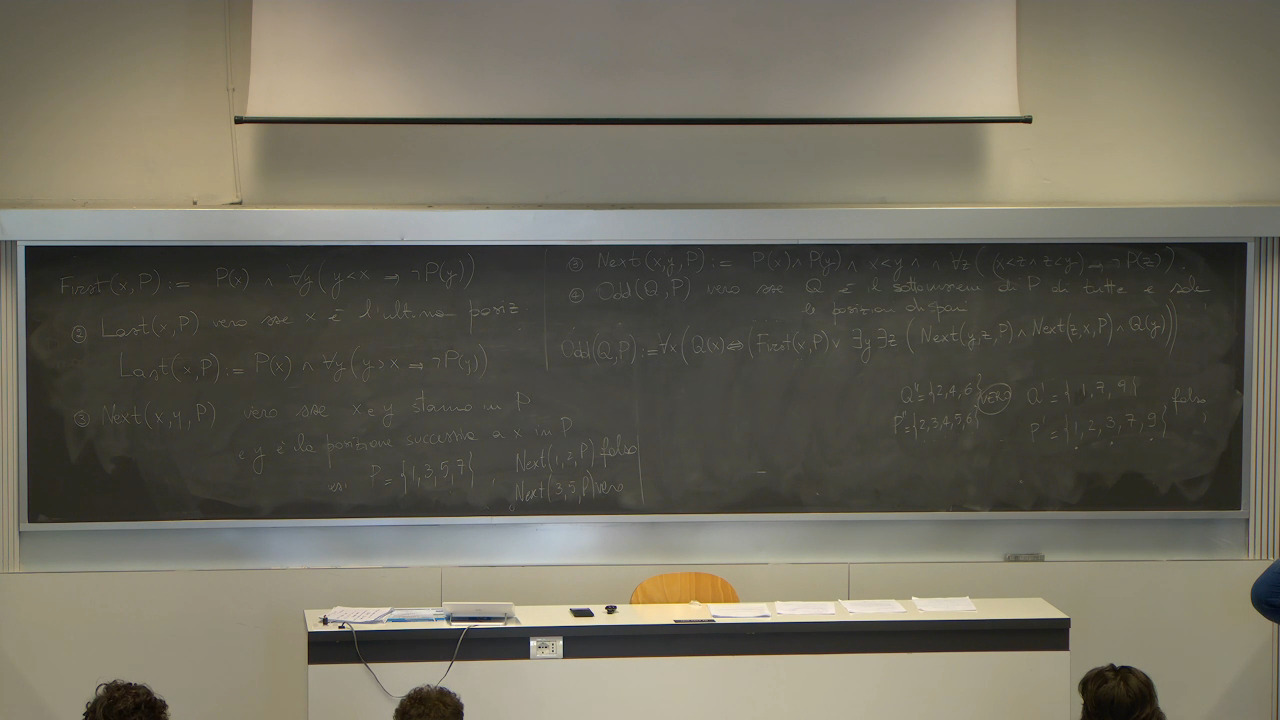 First(x,P) := P(x) ∧ ∀y(y<x ⇒ ¬P(y))
② Last(x,P) vero sse x è l'ultima posiz
Last(x,P) := P(x) ∧ ∀y(y>x ⇒ ¬P(y))
③ Next(x,y,P) vero sse x e y stanno in P
e y è la posizione successiva a x in P
es: P = {1,3,5,7}, Next(1,2,P) falso
Next(3,5,P) vero
③ Next(x,y,P) := P(x) ∧ P(y) ∧ x<y ∧ ∧ ∀z((x<z ∧ z<y) ⇒ ¬P(z)).
④ Odd(Q,P) vero sse Q è il sottoinsieme di P di tutte e sole
le posizioni dispari
Odd(Q,P) := ∀x(Q(x) ⇔ (First(x,P) ∨ ∃y∃z(Next(y,z,P) ∧ Next(z,x,P) ∧ Q(y)))
Q'' = {2,4,6} VERO Q' = {1,7,9} falso
P'' = {2,3,4,5,6} P' = {1,2,3,7,9}